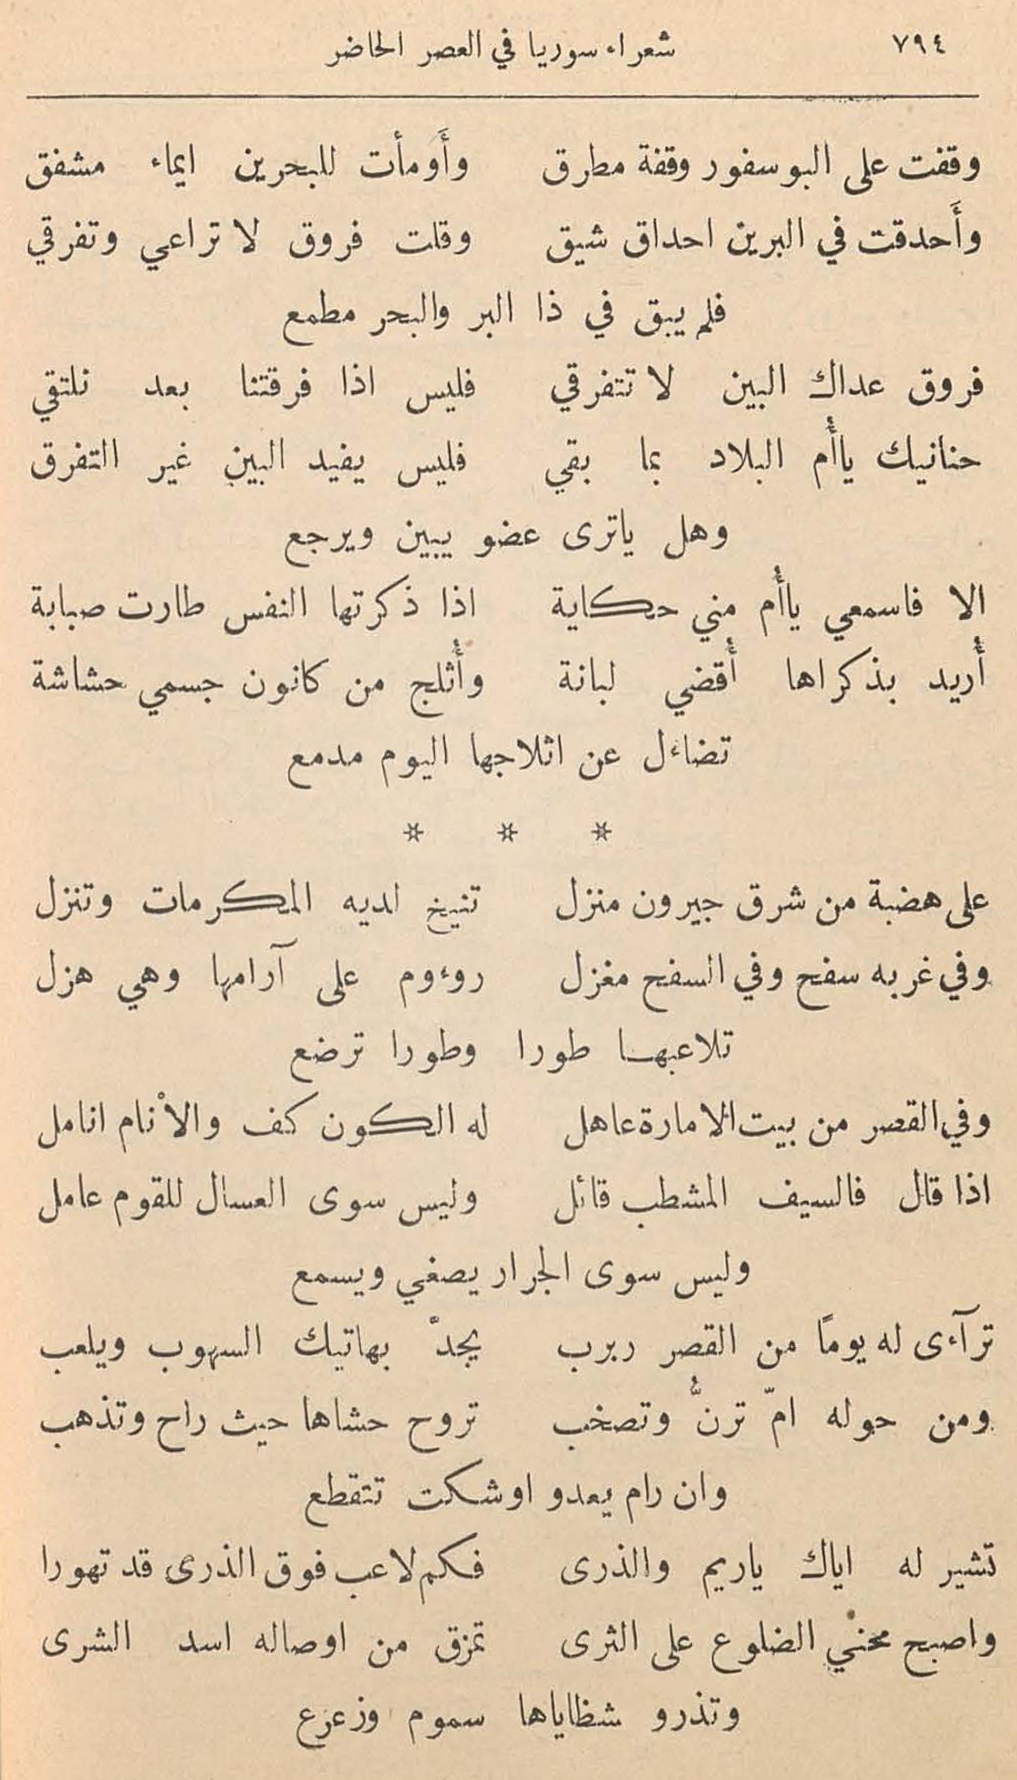 ٧٩٤ شعراء سوريا في العصر الحاضر
وقفت على البوسفور وقفة مطرق وأَومأت للبحرين ايماء مشفق
وأَحدقت في البرين احداق شيق وقلت فروق لا تراعي وتفرقي
فلم يبق في ذا البر والبحر مطمع
فروق عداك البين لا تتفرقي فليس اذا فرقتنا بعد نلتقي
حنانيك ياأُم البلاد بما بقي فليس يفيد البين غير التفرق
وهل ياترى عضو يبين ويرجع
الا فاسمعي ياأُم مني حكاية اذا ذكرتها النفس طارت صبابة
أُريد بذكراها أُقضي لبانة وأُثلج من كانون جسمي حشاشة
تضاءل عن اثلاجها اليوم مدمع
* * *
على هضبة من شرق جيرون منزل تنيخ لديه المكرمات وتنزل
وفي غربه سفح وفي السفح مغزل روءوم على آرامها وهي هزل
تلاعبها طورا وطورا ترضع
وفي القصر من بيت الامارة عاهل له الكون كف والأنام انامل
اذا قال فالسيف المشطب قائل وليس سوى العسال للقوم عامل
وليس سوى الجرار يصغي ويسمع
ترآءى له يومًا من القصر ربرب يجدّ بهاتيك السهوب ويلعب
ومن حوله امّ ترنُّ وتصخب تروح حشاها حيث راح وتذهب
وان رام يعدو اوشكت تتقطع
تشير له اياك ياريم والذرى فكم لاعب فوق الذرى قد تهورا
واصبح محني الضلوع على الثرى تمزق من اوصاله اسد الشرى
وتذرو شظاياها سموم وزعزع